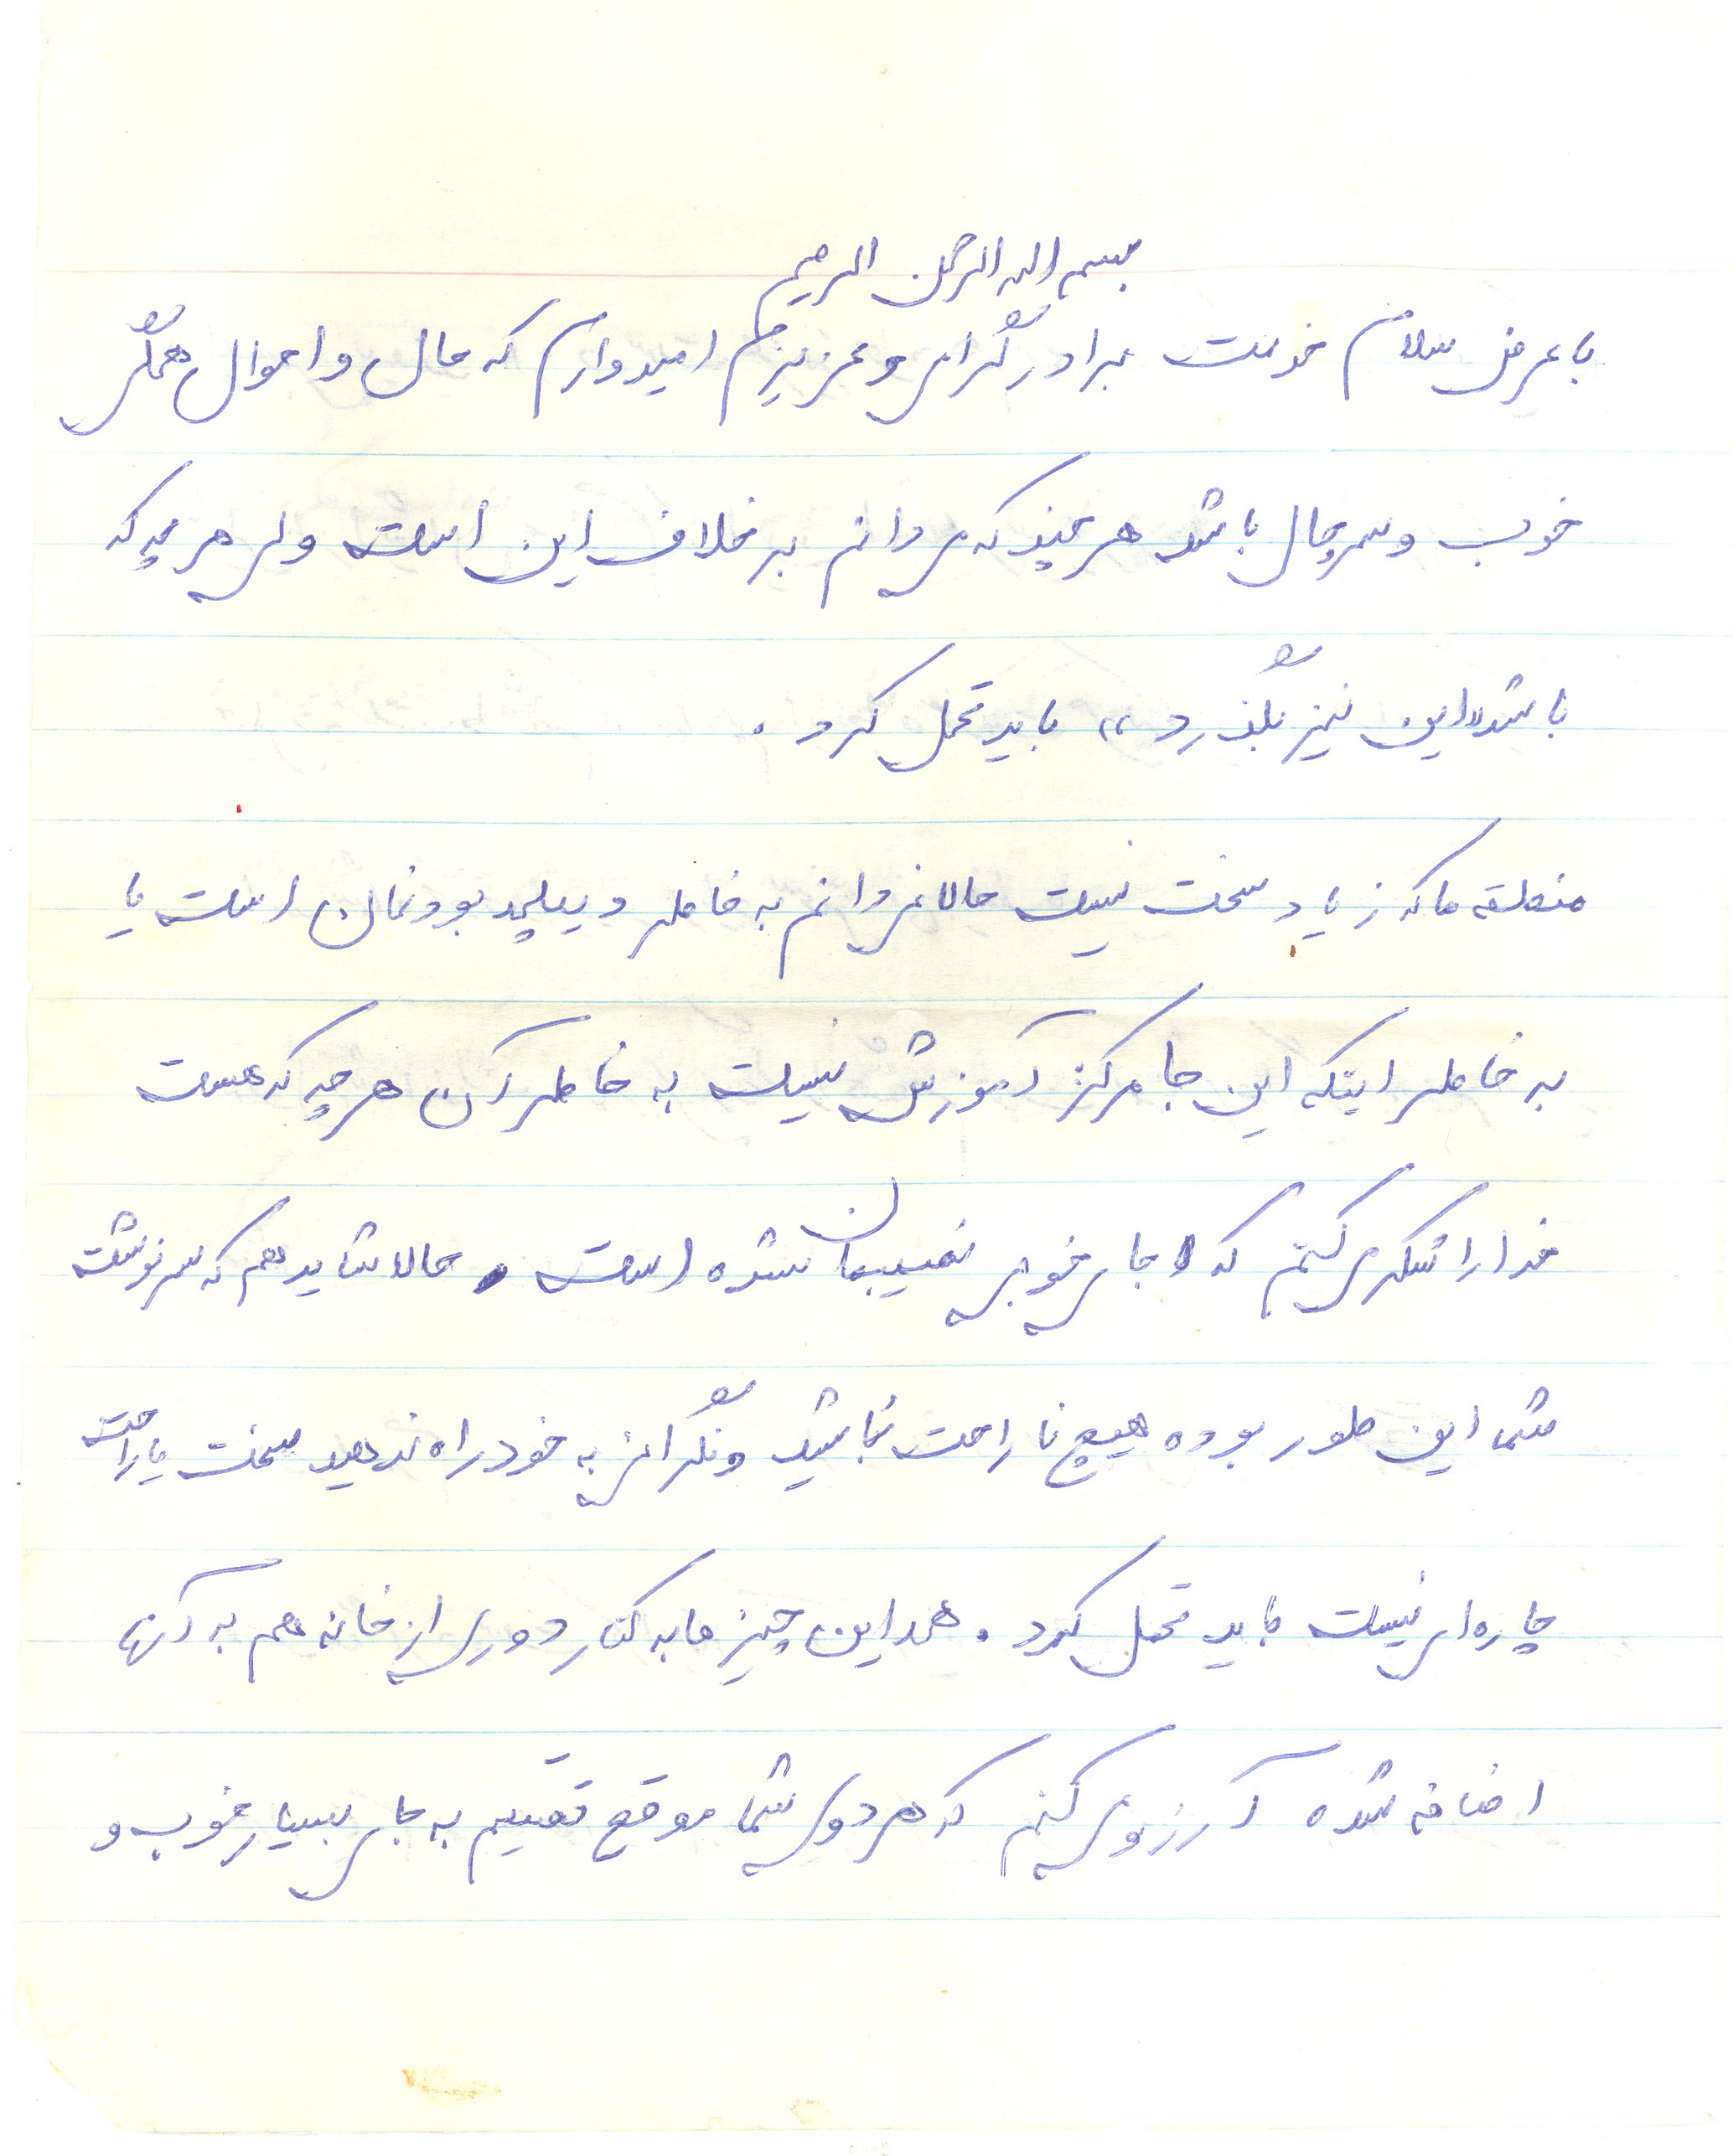 بسم الله الرحمن الرحیم
با عرض سلام خدمت برادر گرامی و عزیزم امیدوارم که حال و احوال همگی
خوب و سرحال باشد هر چند که می دانم بر خلاف این است ولی هر چه که
باشد «این نیز بگذرد» باید تحمل کرد .
منطقه ما که زیاد سخت نیست حالا نمی دانم به خاطر دیپلمه بودنمان است یا
به خاطر اینکه این جا مرکز آموزش نیست به خاطر آن هر چه که هست
خدا را شکر می کنم که جای خوبی نصیبمان شده است . حالا شاید هم که سرنوشت
شما این طور بوده هیچ ناراحت نباشید و نگرانی به خود راه ندهید سخت یا راحت
چاره ای نیست باید تحمل کرد . همه این چیز ها به کنار دوری از خانه هم به آنها
اضافه شده آرزو می کنم که هر دوی شما موقع تقسیم به جای بسیار خوب و